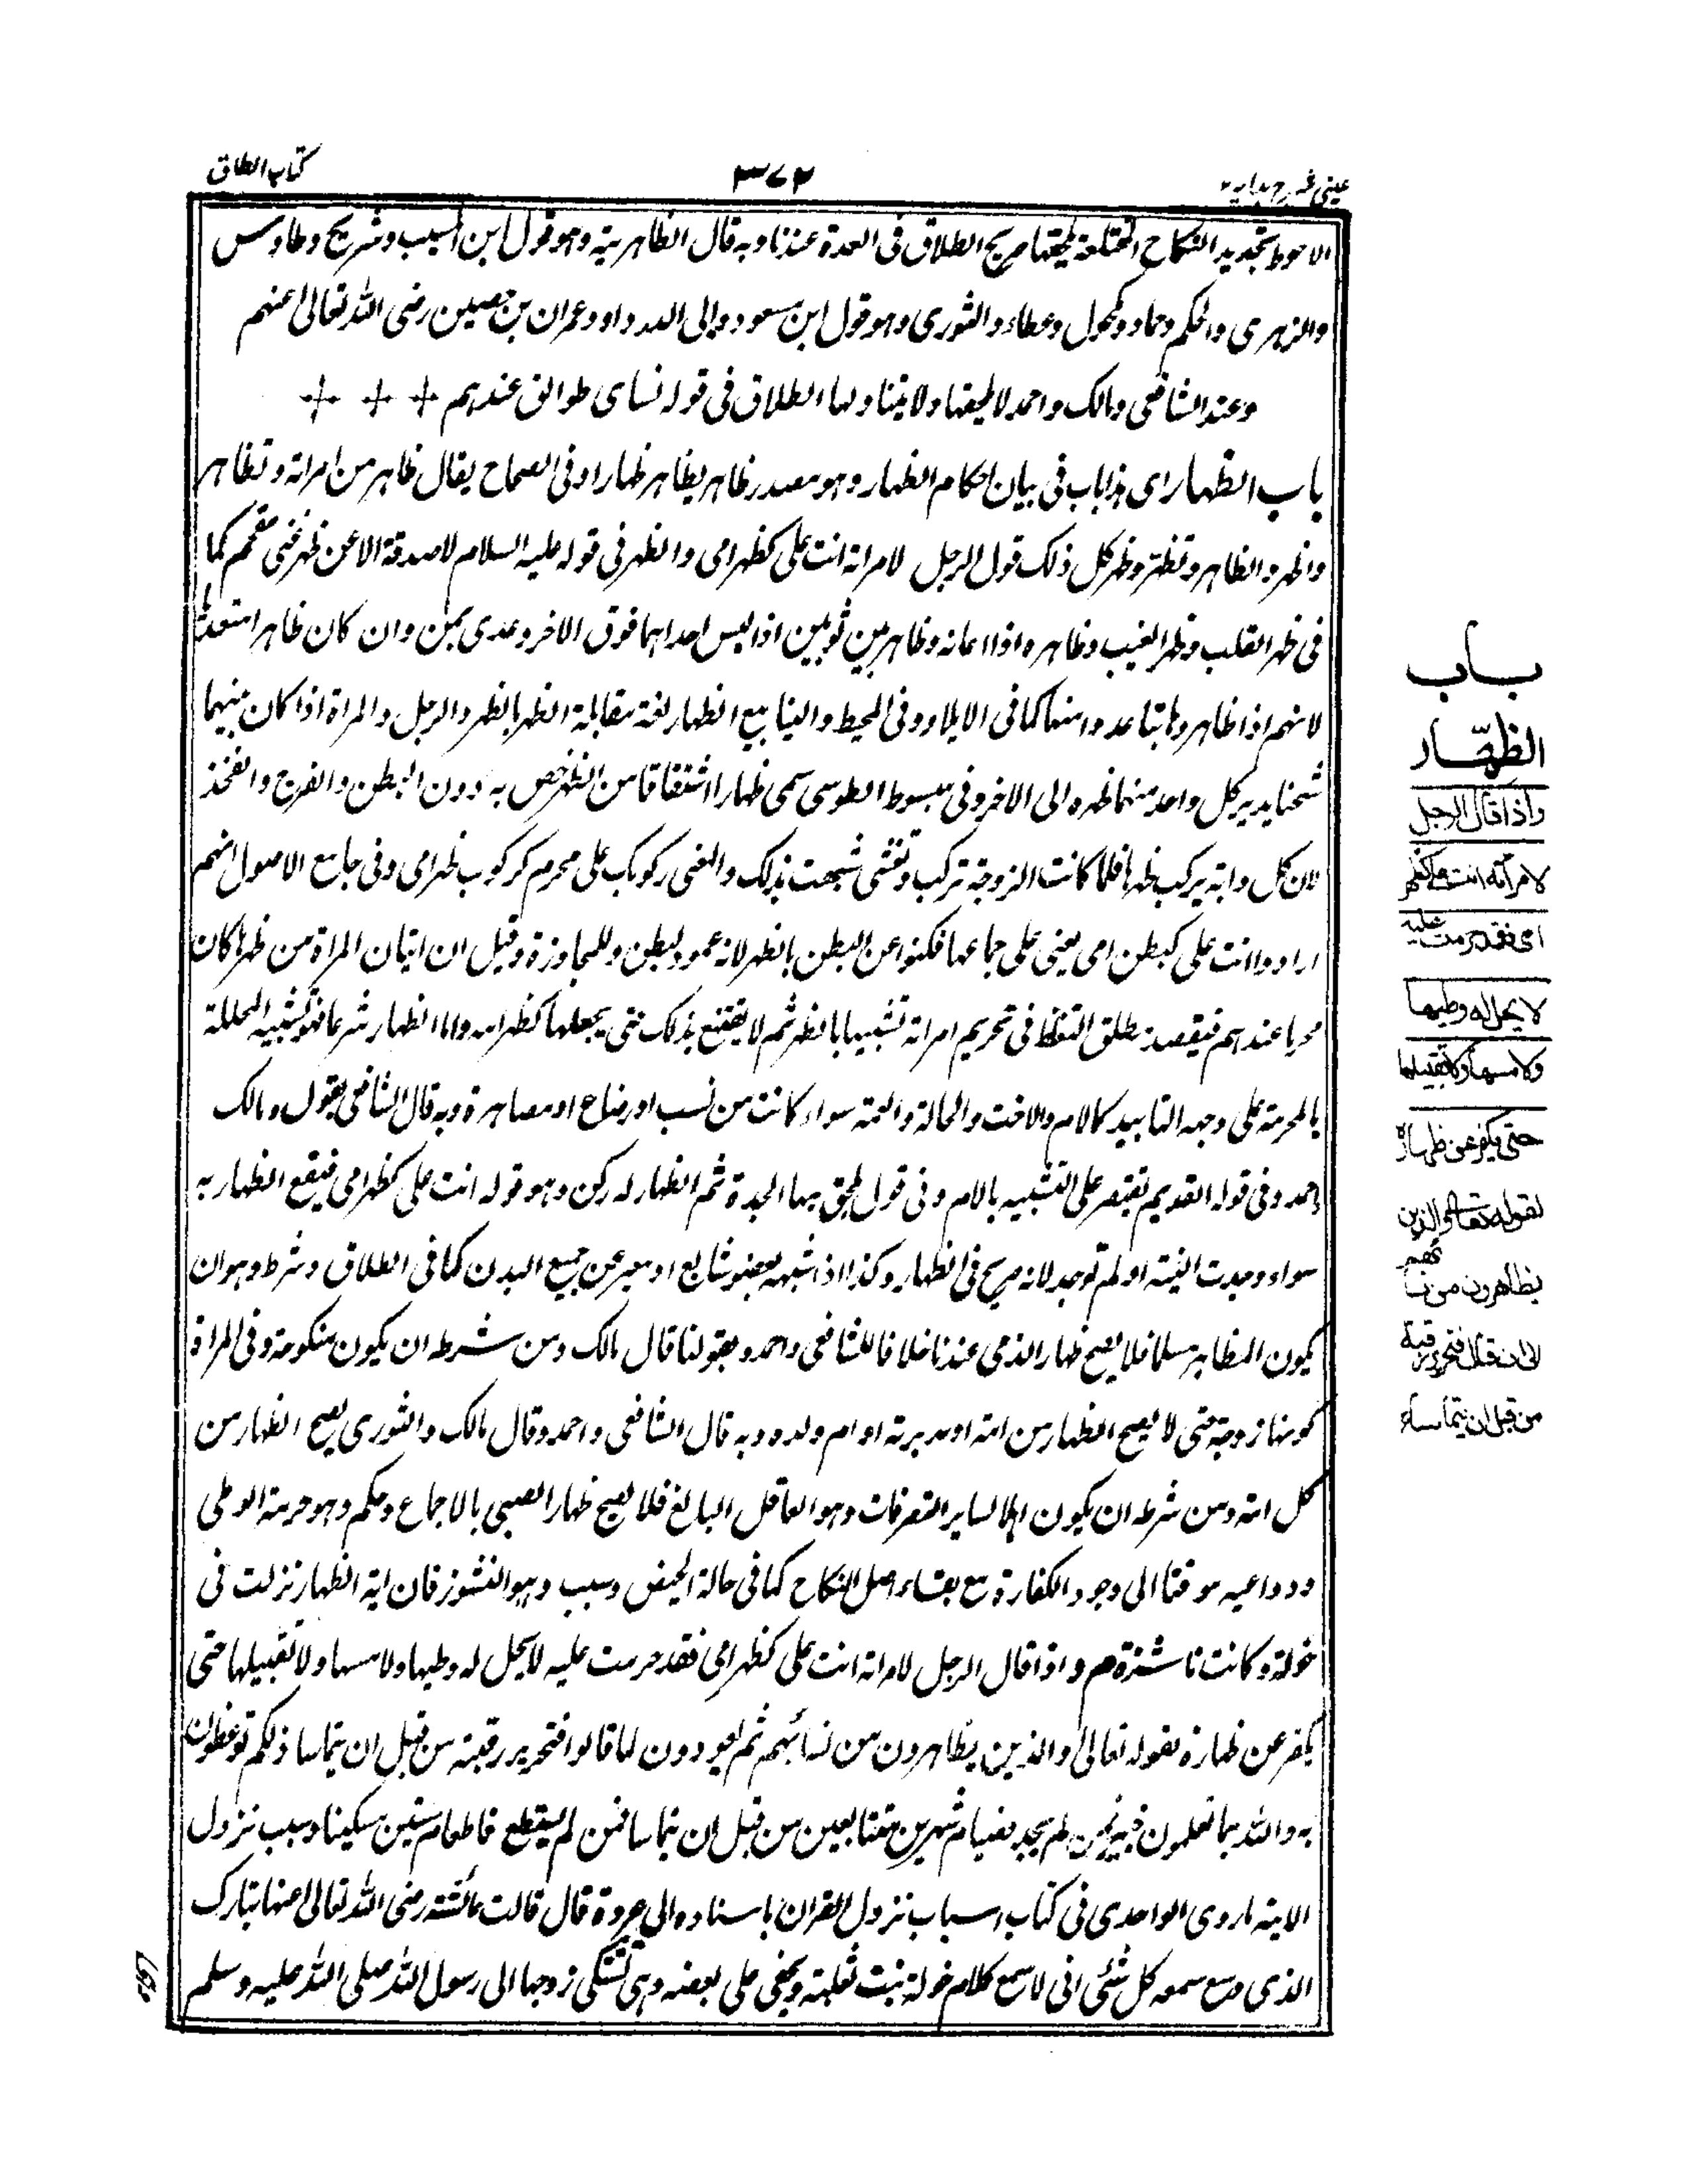 عینی شرح ہدایہ ۲
۳۷۲
کتاب الطلاق
الاحوط تجدید النکاح المختلعۃ یلحقہا صریح الطلاق فی العدۃ عندنا وبہ قال الظاہریۃ وہو قول ابن المسیب وشریح وطاوس
والزہری والحکم وحماد ومکحول وعطاء والثوری وہو قول ابن مسعود وابی الدرداء وعمران بن حصین رضی اللہ تعالیٰ عنہم
وعند الشافعی ومالک واحمد لا یلحقہا ولا یتناولہا الطلاق فی قولہ نسای طوالق عندہم
باب الظہار ای ہذا باب فی بیان احکام الظہار وہو مصدر ظاہر یظاہر ظہارا وفی الصحاح یقال ظاہر من امراتہ وتظاہر
واظہر واظاہر وتظہر وظہر کل ذلک قول الرجل لامراتہ انت علی کظہر امی والظہر فی قولہ علیہ السلام لا صدقۃ الا عن ظہر غنی مقحم کما
فی ظہر القلب وظہر الغیب وظاہرہ اذا اعانہ وظاہر بین ثوبین اذا لبس احداہما فوق الاخر وعدی بمن وان کان ظاہر متعدیا
لانہم اذا ظاہروہا تباعدوا منہا کما فی الایلاء وفی المحیط والینابیع الظہار لغۃ مقابلۃ الظہر بالظہر والرجل والمراۃ اذا کان بینہما
شحنا یدیر کل واحد منہما ظہرہ الی الاخر وفی مبسوط الطوسی سمی ظہارا اشتقاقا من الظہر خص بہ دون البطن والفرج والفخذ
لان کل دابۃ یرکب ظہرہا فلما کانت الزوجۃ ترکب وتغشی شبہت بذلک والمعنی رکوبک علی محرم کرکوب ظہر امی وفی جامع الاصول انہم
ارادوا انت علی کبطن امی یعنی علی جماعہا فکنوا عن البطن بالظہر لانہ عمود البطن وللمجاوزۃ وقیل ان اتیان المراۃ من ظہرہا کان
محرما عندہم فیقصد مطلق التغلظ فی تحریم امراتہ تشبیہا بالظہر ثم لا یقنع بذلک حتی یجعلہا کظہر امہ واما الظہار شرعا فہو تشبیہ المحللۃ
بالمحرمۃ علی وجہ التابید کالام والاخت والخالۃ والعمۃ سواء کانت من نسب او رضاع او مصاہرۃ وبہ قال الشافعی بقول ومالک
واحمد وفی قولہ القدیم یقتصر علی التشبیہ بالام وفی قول یلحق بہا الجدۃ ثم الظہار لہ رکن وہو قولہ انت علی کظہر امی فیقع الظہار بہ
سواء وجدت النیۃ او لم توجد لانہ صریح فی الظہار وکذا اذا شبہہ بعضو شایع او معبر عن جمیع البدن کما فی الطلاق وشرط وہو ان
یکون المظاہر مسلما فلا یصح ظہار الذمی عندنا خلافا للشافعی واحمد وبقولنا قال مالک ومن شرطہ ان یکون منکوحۃ وفی المراۃ
کونہا زوجۃ حتی لا یصح الظہار من امتہ او مدبرتہ او ام ولدہ وبہ قال الشافعی واحمد وقال مالک والثوری یصح الظہار من
کل امۃ ومن شرطہ ان یکون اہلا لسایر التصرفات وہو العاقل البالغ فلا یصح ظہار الصبی بالاجماع وحکم وہو حرمۃ الوطی
ودواعیہ موقتا الی وجود الکفارۃ مع بقاء اصل النکاح کما فی حالۃ الحیض وسبب وہو النشوز فان ایۃ الظہار نزلت فی
خولۃ وکانت ناشزۃ م واذا قال الرجل لامراتہ انت علی کظہر امی فقد حرمت علیہ لا یحل لہ وطیہا ولا مسہا ولا تقبیلہا حتی
یکفر عن ظہارہ لقولہ تعالیٰ والذین یظاہرون من نسائہم ثم یعودون لما قالوا فتحریر رقبۃ من قبل ان یتماسا ذلکم توعظون
بہ واللہ بما تعملون خبیر فمن لم یجد فصیام شہرین متتابعین من قبل ان یتماسا فمن لم یستطع فاطعام ستین مسکینا وسبب نزول
الایۃ ما روی الواحدی فی کتاب اسباب نزول القران باسنادہ الی عروۃ قال قالت عائشۃ رضی اللہ تعالیٰ عنہا تبارک
الذی وسع سمعہ کل شئی انی لاسمع کلام خولۃ بنت ثعلبۃ ویخفی علی بعضہ وہی تشتکی زوجہا الی رسول اللہ صلی اللہ علیہ وسلم
باب
الظہار
واذا قال الرجل
لامرأته انت علی کظهر
امی فقد حرمت علیه
لا یحل له وطیها
ولا مسها ولا تقبیلها
حتی یکفر عن ظهاره
لقوله تعالی والذین
یظاهرون من نسائهم
الی ان قال فتحریر رقبة
من قبل ان یتماسا